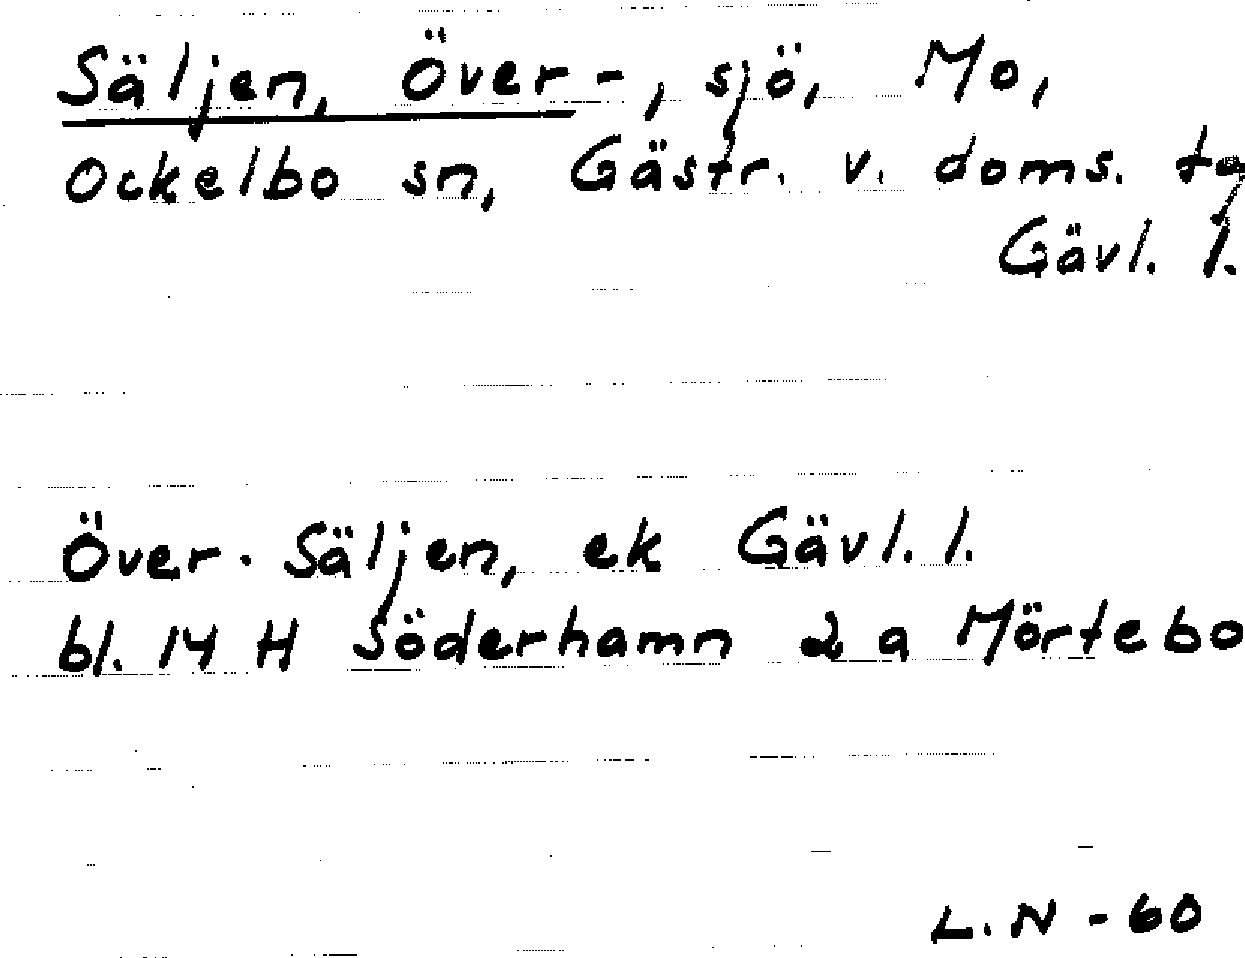 Säljen, Över-, sjö, Mo,
Ockelbo sn, Gästr. v. doms. tg
Gävl. l.
Över-Säljen, ek Gävl. l.
bl. 14 H Söderhamn 2 a Mörtebo
L. N - 60